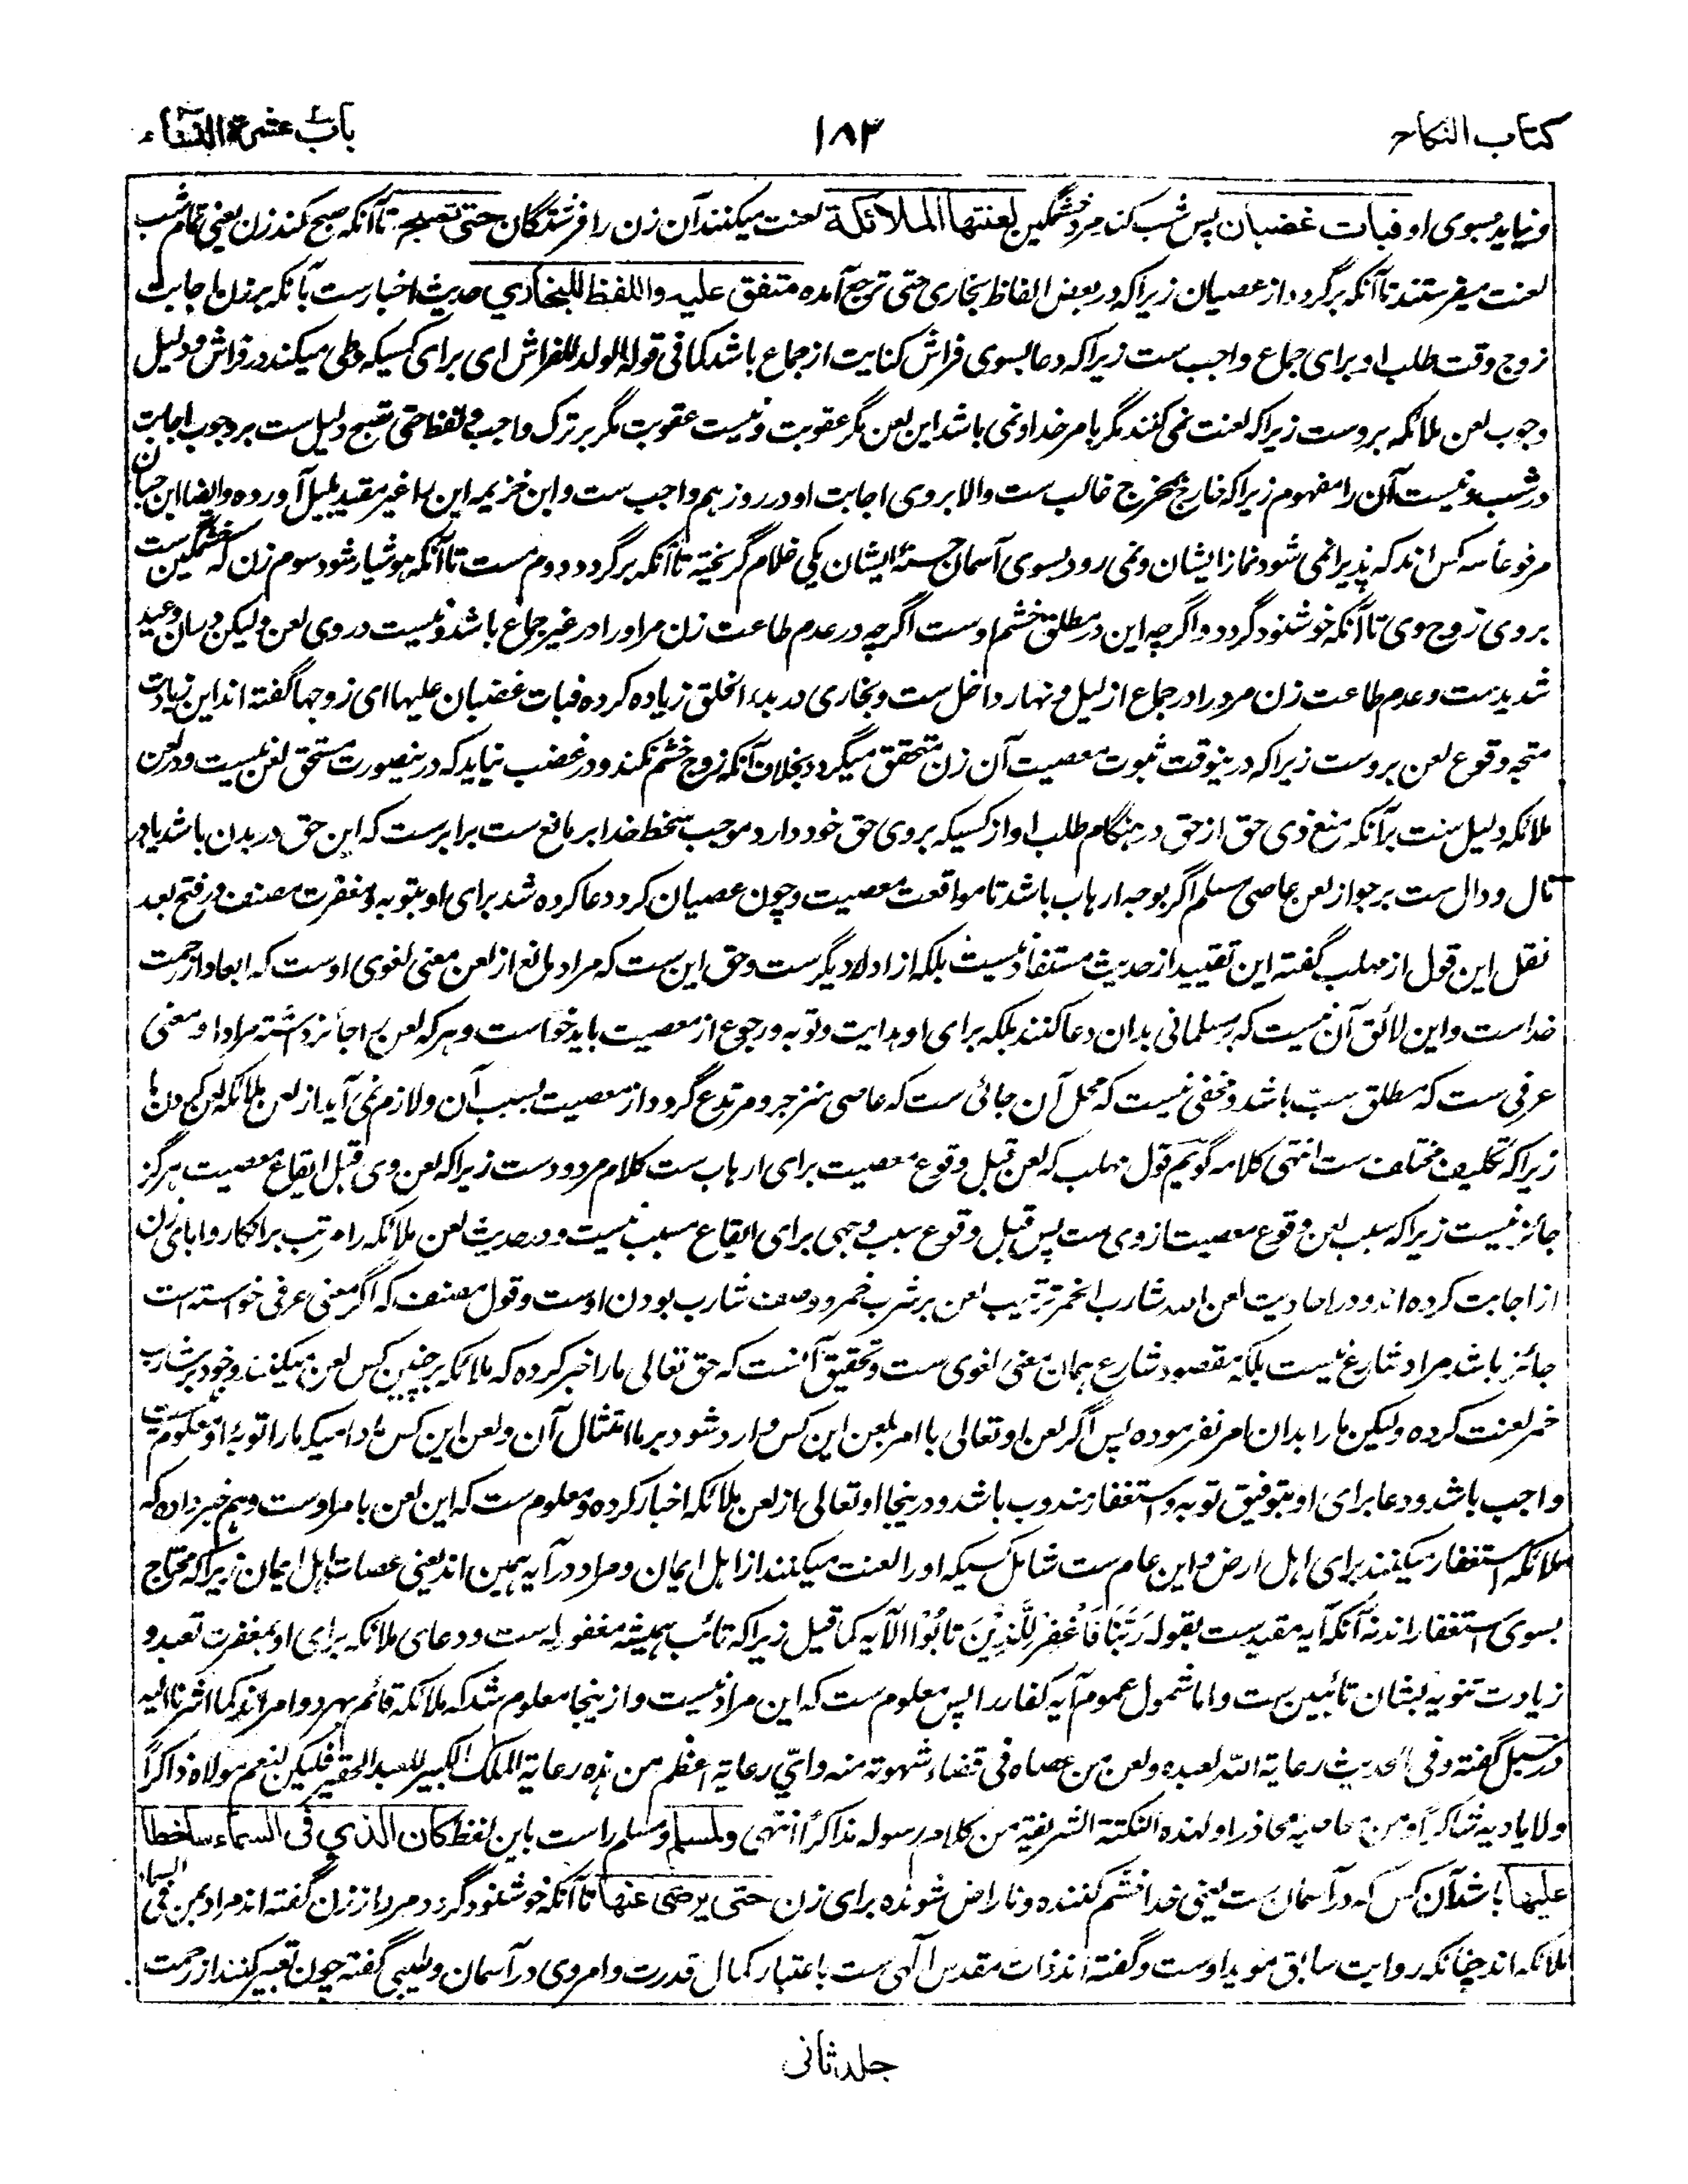 کتاب النکاح
۱۸۳
باب عشرة النساء
ونیاید بسوی او فبات غضبان پس شب کند مرد خشمگین لعنتها الملائکة لعنت میکنند آن زن را فرشتگان حتی تصبح تا آنکه صبح کند زن یعنی تمام شب
لعنت میفرستند تا آنکه برگردد از عصیان زیرا که در بعض الفاظ بخاری حتی ترجع آمده متفق علیه واللفظ للبخاري حدیث اخبارست بآنکه بر زن اجابت
زوج وقت طلب او برای جماع واجب ست زیرا که دعا بسوی فراش کنایت از جماع باشد کما فی قوله الولد للفراش ای برای کسیکه وطی میکند در فراش و دلیل
وجوب لعن ملائکه بروست زیرا که لعنت نمی کنند مگر بامر خدا و نمی باشد این لعن مگر عقوبت و نیست عقوبت مگر بر ترک واجب و لفظ حتی تصبح دلیل ست بر وجوب اجابت
در شب و نیست آن را مفهوم زیرا که خارج مخرج غالب ست والا بروی اجابت او در روز هم واجب ست و ابن خزیمه این را غیر مقید بلیل آورده و ایضا ابن حبان
مرفوعا سه کس اند که پذیرا نمی شود نماز ایشان و نمی رود بسوی آسمان حسنهٔ ایشان یکی غلام گریخته تا آنکه برگردد دوم مست تا آنکه هوشیار شود سوم زن که خشمگین ست
بروی زوج وی تا آنکه خوشنود گردد و اگرچه این در مطلق خشم اوست اگرچه در عدم طاعت زن مر او را در غیر جماع باشد و نیست در وی لعن و لیکن در آن وعید
شدیدست و عدم طاعت زن مرد را در جماع از لیل و نهار داخل ست و بخاری در بدء الخلق زیاده کرده فبات غضبان علیها ای زوجها گفته اند این زیادت
متجه وقوع لعن بروست زیرا که درینوقت ثبوت معصیت آن زن متحقق میگردد بخلاف آنکه زوج خشم نکند و در غضب نیاید که درینصورت مستحق لعن نیست و در لعن
ملائکه دلیل ست برآنکه منع ذی حق از حق در هنگام طلب او از کسیکه بروی حق خود دارد موجب سخط خدا بر مانع ست برابرست که این حق در بدن باشد یا در
مال و دال ست بر جواز لعن عاصی مسلم اگر بوجه ارهاب باشد تا مواقعت معصیت و چون عصیان کرد دعا کرده شد برای او بتوبه و مغفرت مصنف در فتح بعد
نقل این قول از مهلب گفته این تقیید از حدیث مستفاد نیست بلکه از ادلهٔ دیگرست و حق این ست که مراد مانع از لعن معنی لغوی اوست که ابعاد از رحمت
خداست و این لائق آن نیست که بر مسلمانی بدان دعا کنند بلکه برای او هدایت و توبه و رجوع از معصیت باید خواست و هر که لعن را جائز داشته مراد او معنی
عرفی ست که مطلق سب باشد و مخفی نیست که محل آن جائی ست که عاصی منزجر و مرتدع گردد از معصیت بسبب آن و لازم نمی آید از لعن ملائکه لعن کردن ما
زیرا که تکلیف مختلف ست انتهی کلامه گویم قول مهلب که لعن قبل وقوع معصیت برای ارهاب ست کلام مردودست زیرا که لعن وی قبل ایقاع معصیت هرگز
جائز نیست زیرا که سبب لعن وقوع معصیت از وی ست پس قبل وقوع سبب وجهی برای ایقاع مسبب نیست و در حدیث لعن ملائکه را مرتب بر انکار و ابای زن
از اجابت کرده اند و در احادیث لعن الله شارب الخمر ترتیب لعن بر شرب خمر و وصف شارب بودن اوست و قول مصنف که اگر معنی عرفی خواسته است
جائز باشد مراد شارع نیست بلکه مقصود شارع همان معنی لغوی ست و تحقیق آنست که حق تعالی ما را خبر کرده که ملائکه بر چنین کس لعن میکنند و خود بر شارب
خمر لعنت کرده و لیکن ما را بدان امر نفرموده پس اگر لعن او تعالی با امر بلعن این کس وارد شود بر ما امتثال آن و لعن این کس مادامیکه ما را توبهٔ او معلوم نیست
واجب باشد و دعا برای او بتوفیق توبه و استغفار مندوب باشد و درینجا او تعالی از لعن ملائکه اخبار کرده و معلوم ست که این لعن بامر اوست و هم خبر داده که
ملائکه استغفار میکنند برای اهل ارض و این عام ست شامل کسیکه او را لعنت میکنند از اهل ایمان و مراد در آیه همین اند یعنی عصات اهل ایمان زیرا که محتاج
بسوی استغفار اند نه آنکه آیه مقیدست بقوله رَبَّنَا فَاغْفِرْ لِلَّذِيْنَ تَابُوْا الآیه کما قیل زیرا که تائب همیشه مغفور له ست و دعای ملائکه برای او بمغفرت تعبد و
زیادت تنویه بشان تائبین ست و اما شمول عموم آیه کفار را پس معلوم ست که این مراد نیست و ازینجا معلوم شد که ملائکه قائم بهر دو امر اند کما اشرنا الیه
در سبل گفته و فی الحدیث رعایة الله لعبده و لعن من عصاه فی قضاء شهوته منه و ایّ رعایة اعظم من هذه رعایة الملک الکبیر للعبد الحقیر فلیکن لنعم مولاه ذاکراً
ولایادیه شاکراً و من معاصیه محاذرا و لهذه النکتة الشریفة من کلام رسوله مذاکراً انتهی ولمسلم و مسلم راست باین لفظ کان الذي فی السماء ساخطا
علیها باشد آن کس که در آسمان ست یعنی خدا خشم کننده و ناراض شونده برای زن حتی یرضی عنها تا آنکه خوشنود گردد مرد از زن گفته اند مراد بمن فی السماء
ملائکه اند چنانکه روایت سابق موید اوست و گفته اند ذات مقدس آلهی ست باعتبار کمال قدرت و امر وی در آسمان و طیبی گفته چون تعبیر کنند از رحمت
جلد ثانی